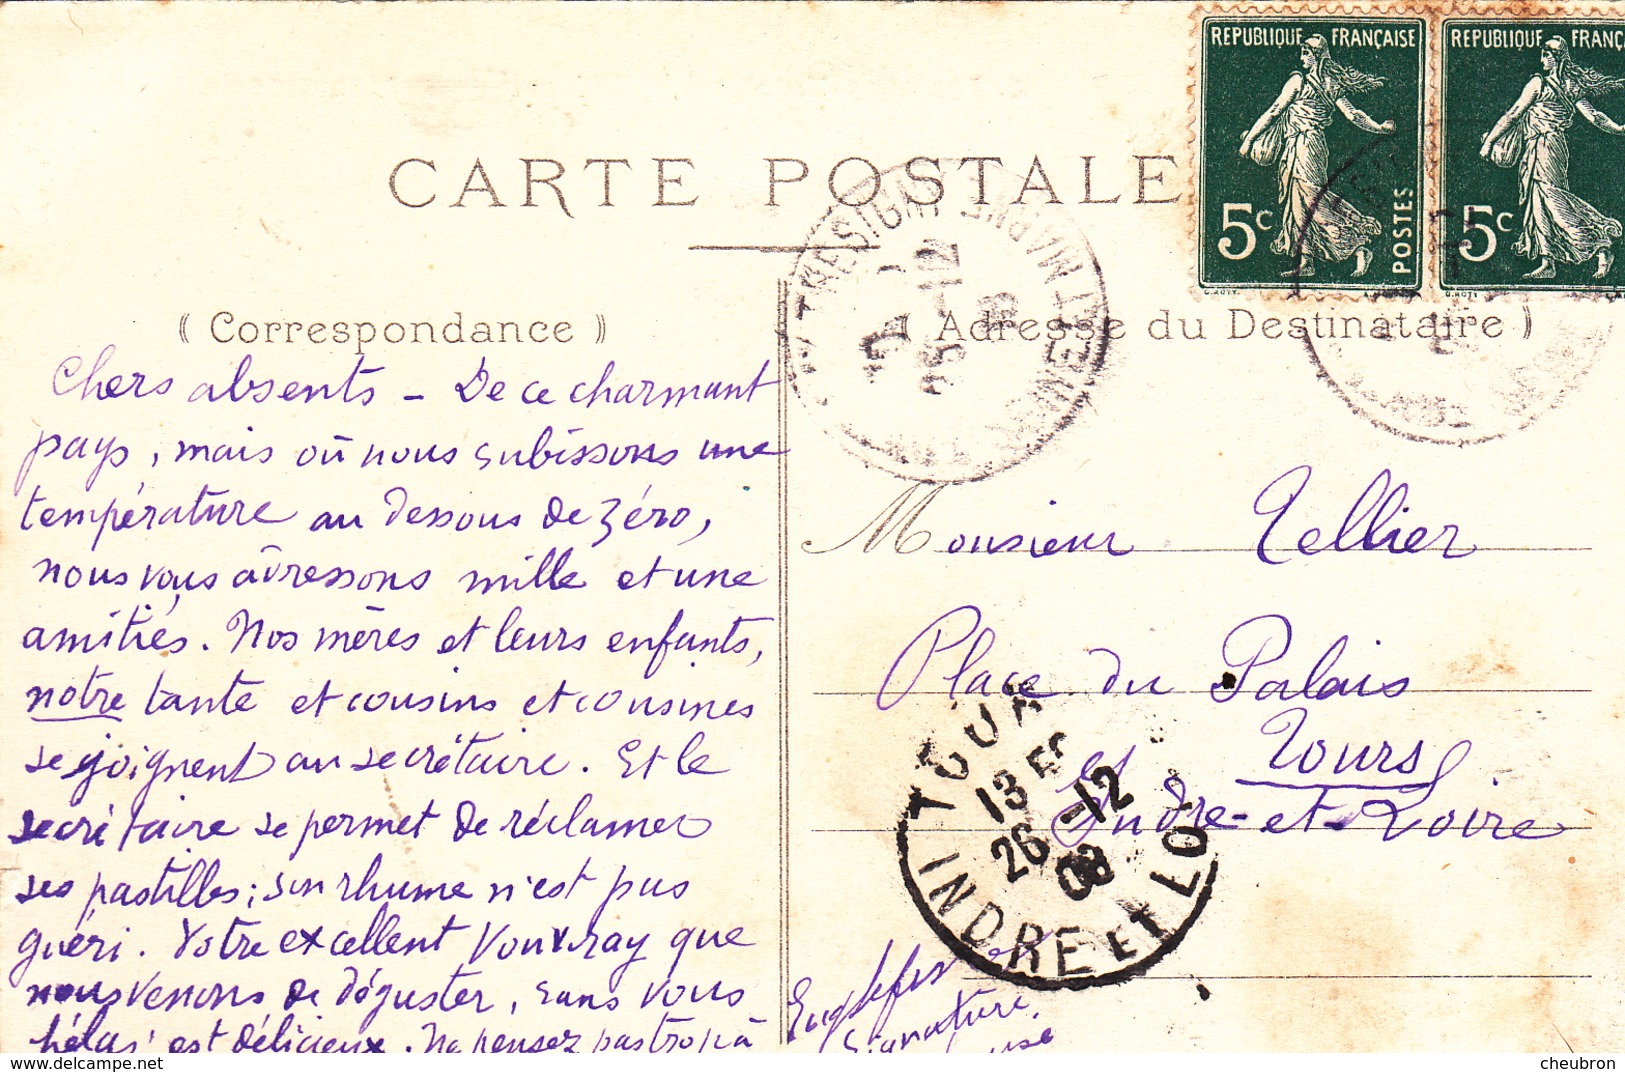 REPUBLIQUE FRANÇAISE
5c
POSTES
REPUBLIQUE FRANÇA
5c
CARTE POSTALE
( Correspondance )
( Adresse du Destinataire )
Chers absents - De ce charmant
pays, mais où nous subissons une
température au dessous de zéro,
nous vous adressons mille et une
amitiés. Nos mères et leurs enfants,
notre tante et cousins et cousines
se joignent au secrétaire. Et le
secrétaire se permet de réclamer
ses pastilles; son rhume n'est pas
guéri. Votre excellent Vouvray que
nous venons de déguster, sans vous
hélas' est délicieux. Ne pensez pas trop à
Monsieur Tellier
Place du Palais
Tours
Indre-et-Loire
TOUR
13
26 -12
08
INDRE ET LOI
25 -12
08
signature
cheubron
www.delcampe.net